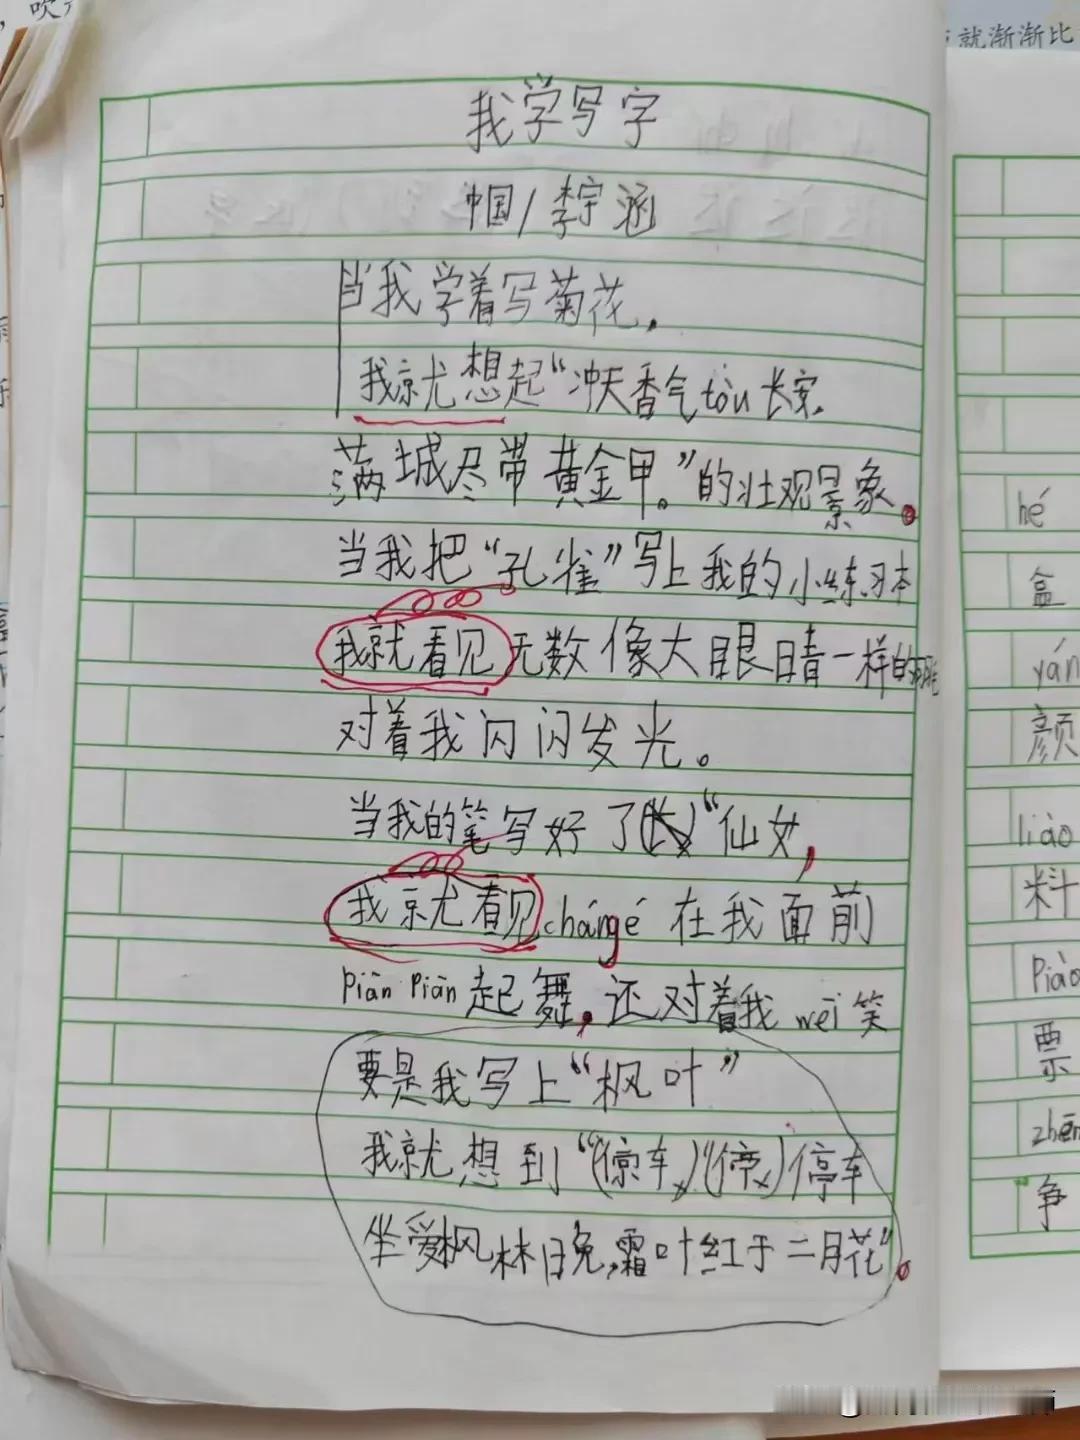 就渐渐比
我学写字
中国/李宇涵
当我学着写菊花，
我就想起“冲天香气tòu长安，
满城尽带黄金甲。”的壮观景象。
当我把“孔雀”写上我的小练习本
我就看见无数像大眼睛一样的
对着我闪闪发光。
当我的笔写好了“仙女，
我就看见cháng é在我面前
piān piān起舞，还对着我wēi笑
要是我写上“枫叶”
我就想到“停车
坐爱枫林晚，霜叶红于二月花”。
hé
盒
yán
颜
liào
料
piào
票
zhēn
争